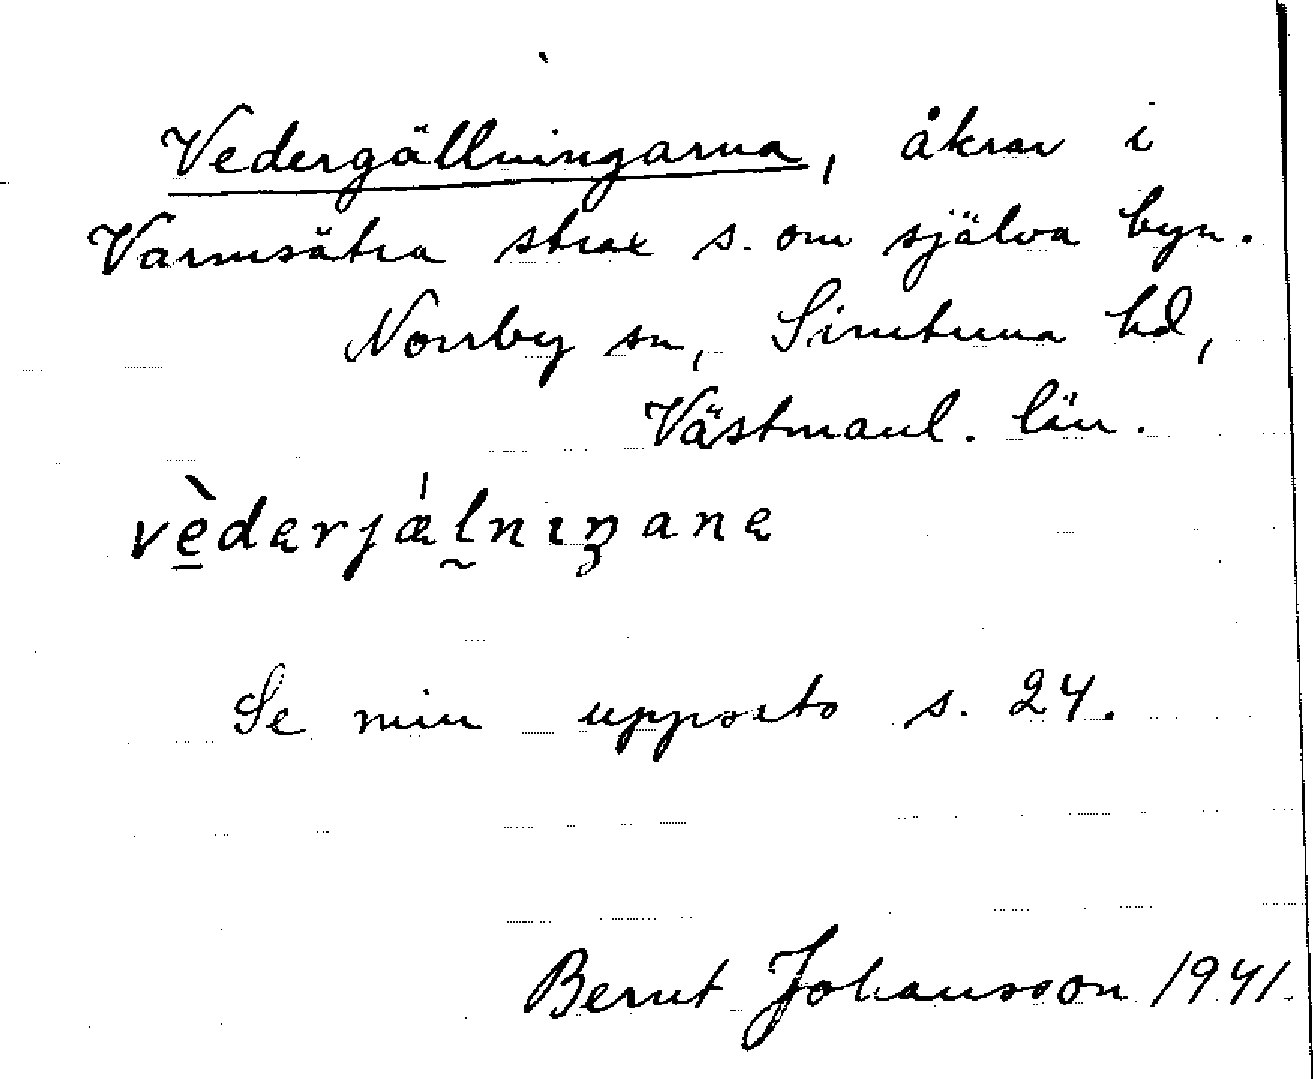 Vedergällningarna, åkrar i
Varmsätra strax s. om själva byn.
Norrby sn, Simtuna hd,
Västmanl. län.
vèdęrjǽl̰nıŋanę
Se min upps s. 24.
Bernt Johansson 1941.